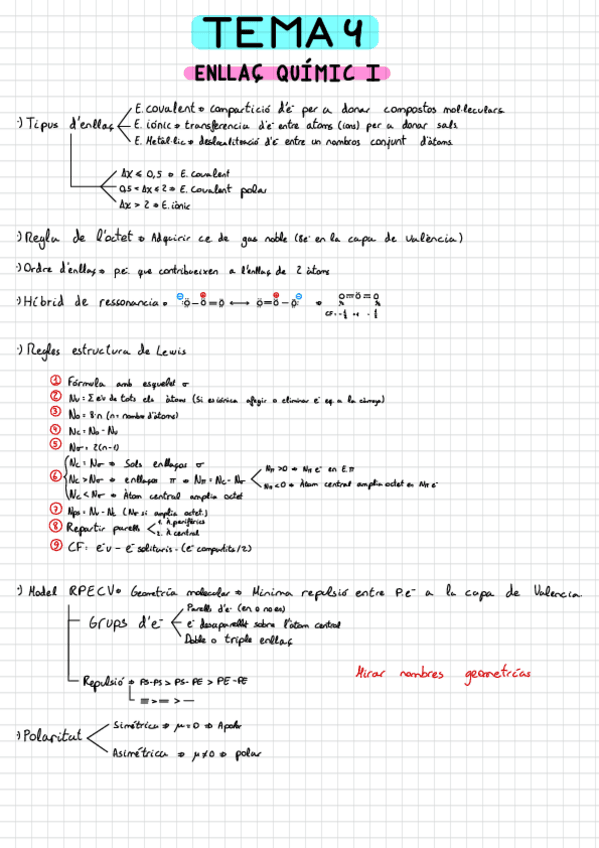 TEMA 4
ENLLAÇ QUÍMIC I
·) Tipus d'enllaç
E. covalent → compartició d'e⁻ per a donar compostos mol·leculars
E. iònic → transferencia d'e⁻ entre atoms (ions) per a donar sals.
E. Metàl·lic → deslocalització d'e⁻ entre un nombros conjunt d'àtoms.
Δx ≤ 0,5 → E. covalent
0,5 < Δx ≤ 2 → E. covalent polar
Δx > 2 → E. iònic
·) Regla de l'octet → Adquirir ce de gas noble (8e⁻ en la capa de València)
·) Ordre d'enllaç → p.e⁻ que contribueixen a l'enllaç de 2 àtoms
·) Híbrid de ressonancia → Ö–Ö=Ö ⟷ Ö=Ö–Ö → O=Ö=O
CF: -½ +1 -½
·) Regles estructura de Lewis
① Fórmula amb esquelet σ
② Nv = Σ e⁻v de tots els àtoms (Si es iònica afegir o eliminar e⁻ eq. a la càrrega)
③ No = 8·n (n = nombre d'àtoms)
④ Nc = No - Nv
⑤ Nσ = 2(n-1)
⑥ Nc = Nσ → Sols enllaços σ
Nc > Nσ → enllaços π → Nπ = Nc - Nσ
Nπ > 0 → Nπ e⁻ en E π
Nπ < 0 → Àtom central amplia octet en Nπ e⁻
Nc < Nσ → Àtom central amplia octet
⑦ Nps = Nv - Nc (Nσ si amplia octet)
⑧ Repartir parells
1. A. perifèrics
2. A central
⑨ CF: e⁻v - e⁻ solitaris - (e⁻ compartits/2)
·) Model RPECV → Geometría molecular → Mínima repulsió entre P.e⁻ a la capa de Valencia.
Grups d'e⁻
Parells d'e⁻ (en o no es)
e⁻ desaparellat sobre l'àtom central
Doble o triple enllaç
Repulsió → PS-PS > PS-PE > PE-PE
≡ > = > –
Mirar nombres geometrías
·) Polaritat
Simétrica → μ=0 → Apolar
Asimétrica → μ≠0 → polar